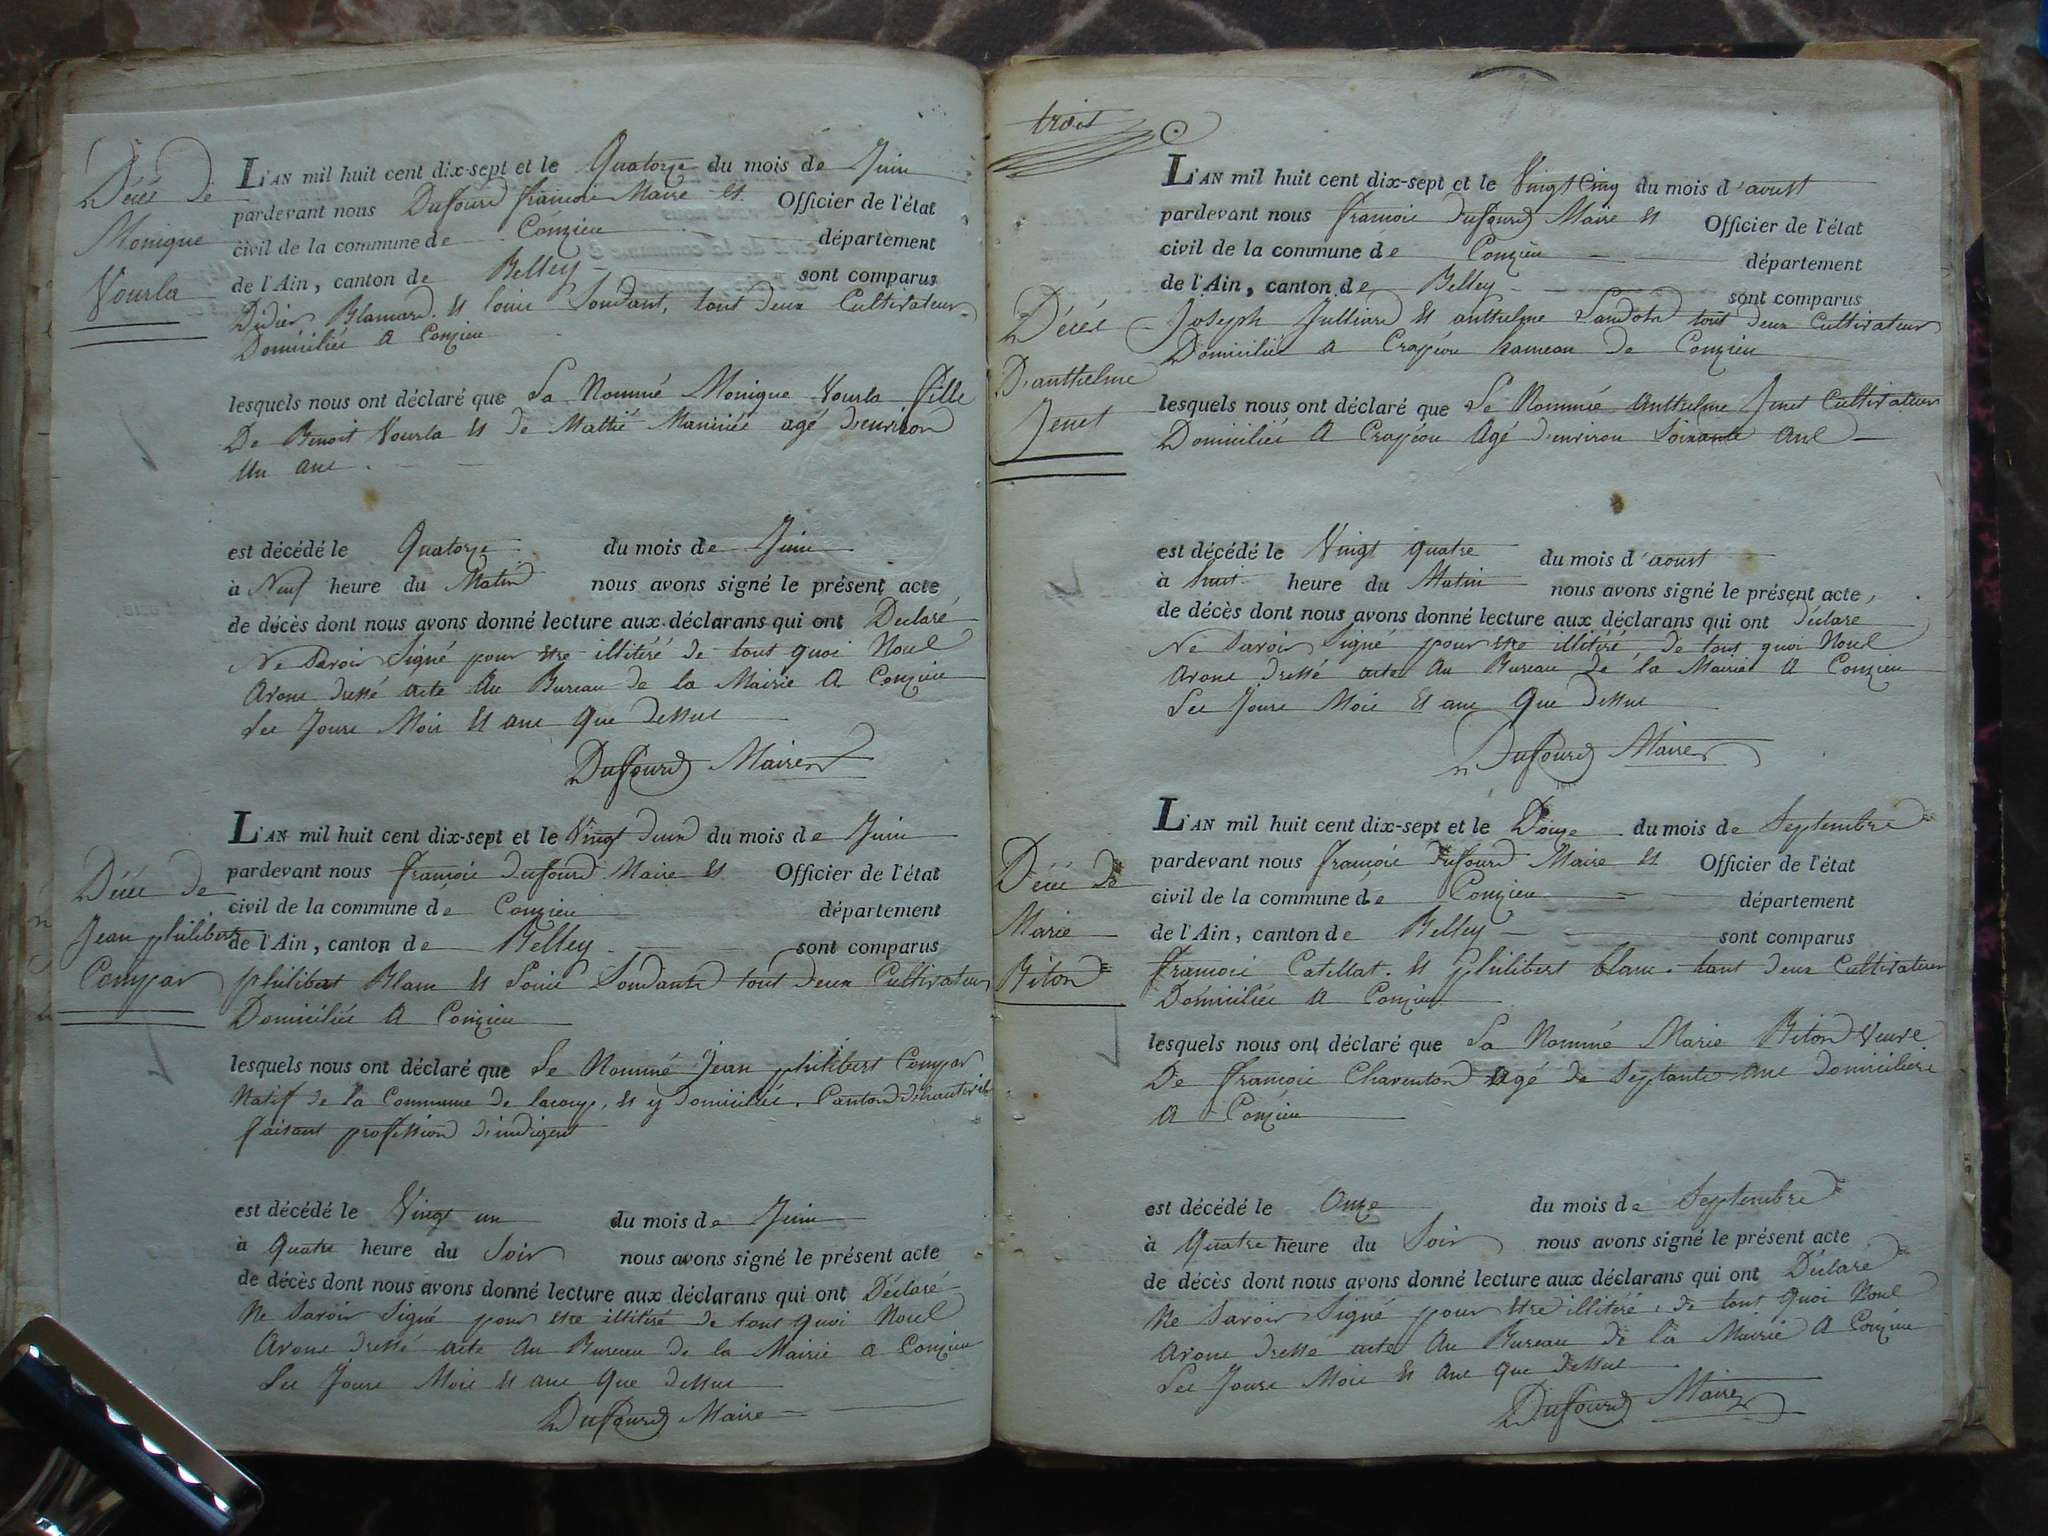 Décés de
Monique
Vourla
L'AN mil huit cent dix-sept et le Quatorze du mois de Juin
pardevant nous Dufourd françois Maire et Officier de l'état
civil de la commune de Conzieu département
de l'Ain, canton de Belley sont comparus
Didier Blancard et louis Soudant, tout deux Cultivateur
Domiciliés a Conzieu
lesquels nous ont déclaré que La Nommé Monique Vourla fille
De Benoit Vourla et de Mathié agé d'environ
un ans
est décédé le Quatorze du mois de Juin
à Neuf heure du Matin nous avons signé le présent acte
de décès dont nous avons donné lecture aux déclarans qui ont Déclaré
Ne Savoir Signé pour etre illitéré de tout quoi Nous
avons dressé acte au Bureau de la Mairie a Conzieu
Les Jours Mois et ans que dessus
Dufourd Maire
Décés de
Jean philibert
Compar
L'AN mil huit cent dix-sept et le Vingt deux du mois de Juin
pardevant nous françois dufourd Maire et Officier de l'état
civil de la commune de Conzieu département
de l'Ain, canton de Belley sont comparus
philibert Blanc et Louis Soudant tout deux Cultivateur
Domiciliés a Conzieu
lesquels nous ont déclaré que Le Nommé Jean philibert Compar
Natif de la Commune de et y domiciliés, Canton
faisant profession d'indigent
est décédé le Vingt un du mois de Juin
à Quatre heure du Soir nous avons signé le présent acte
de décès dont nous avons donné lecture aux déclarans qui ont Déclaré
Ne Savoir Signé pour etre illitéré de tout quoi Nous
avons dressé acte au Bureau de la Mairie a Conzieu
Les Jours Mois et ans que dessus
Dufourd Maire
trois
Décés
D'anthelme
Jenet
L'AN mil huit cent dix-sept et le Vingt Cinq du mois d'aoust
pardevant nous françois dufourd Maire et Officier de l'état
civil de la commune de Conzieu département
de l'Ain, canton de Belley sont comparus
Joseph Julliard et anthelme tout deux Cultivateur
Domiciliés a Crapéou hameau de Conzieu
lesquels nous ont déclaré que Le Nommé anthelme Jenet Cultivateur
Domiciliés a Crapéou agé d'environ Soixante ans
est décédé le Vingt quatre du mois d'aoust
à huit heure du Matin nous avons signé le présent acte
de décès dont nous avons donné lecture aux déclarans qui ont déclaré
Ne Savoir Signé pour etre illitéré, de tout quoi Nous
avons dressé acte au Bureau de la Mairie a Conzieu
Les Jours Mois et ans que dessus
Dufourd Maire
Décés de
Marie
Biton
L'AN mil huit cent dix-sept et le Douze du mois de Septembre
pardevant nous françois dufourd Maire et Officier de l'état
civil de la commune de Conzieu département
de l'Ain, canton de Belley sont comparus
françois Catellat et philibert blanc tout deux Cultivateur
Domiciliés a Conzieu
lesquels nous ont déclaré que La Nommé Marie Biton Veuve
De françois Charenton agé de Septante ans domiciliéé
a Conzieu
est décédé le Onze du mois de Septembre
à Quatre heure du Soir nous avons signé le présent acte
de décès dont nous avons donné lecture aux déclarans qui ont Déclaré
Ne Savoir Signé pour etre illitéré, de tout quoi Nous
avons dressé acte au Bureau de la Mairie a Conzieu
Les Jours Mois et ans que dessus
Dufourd Maire